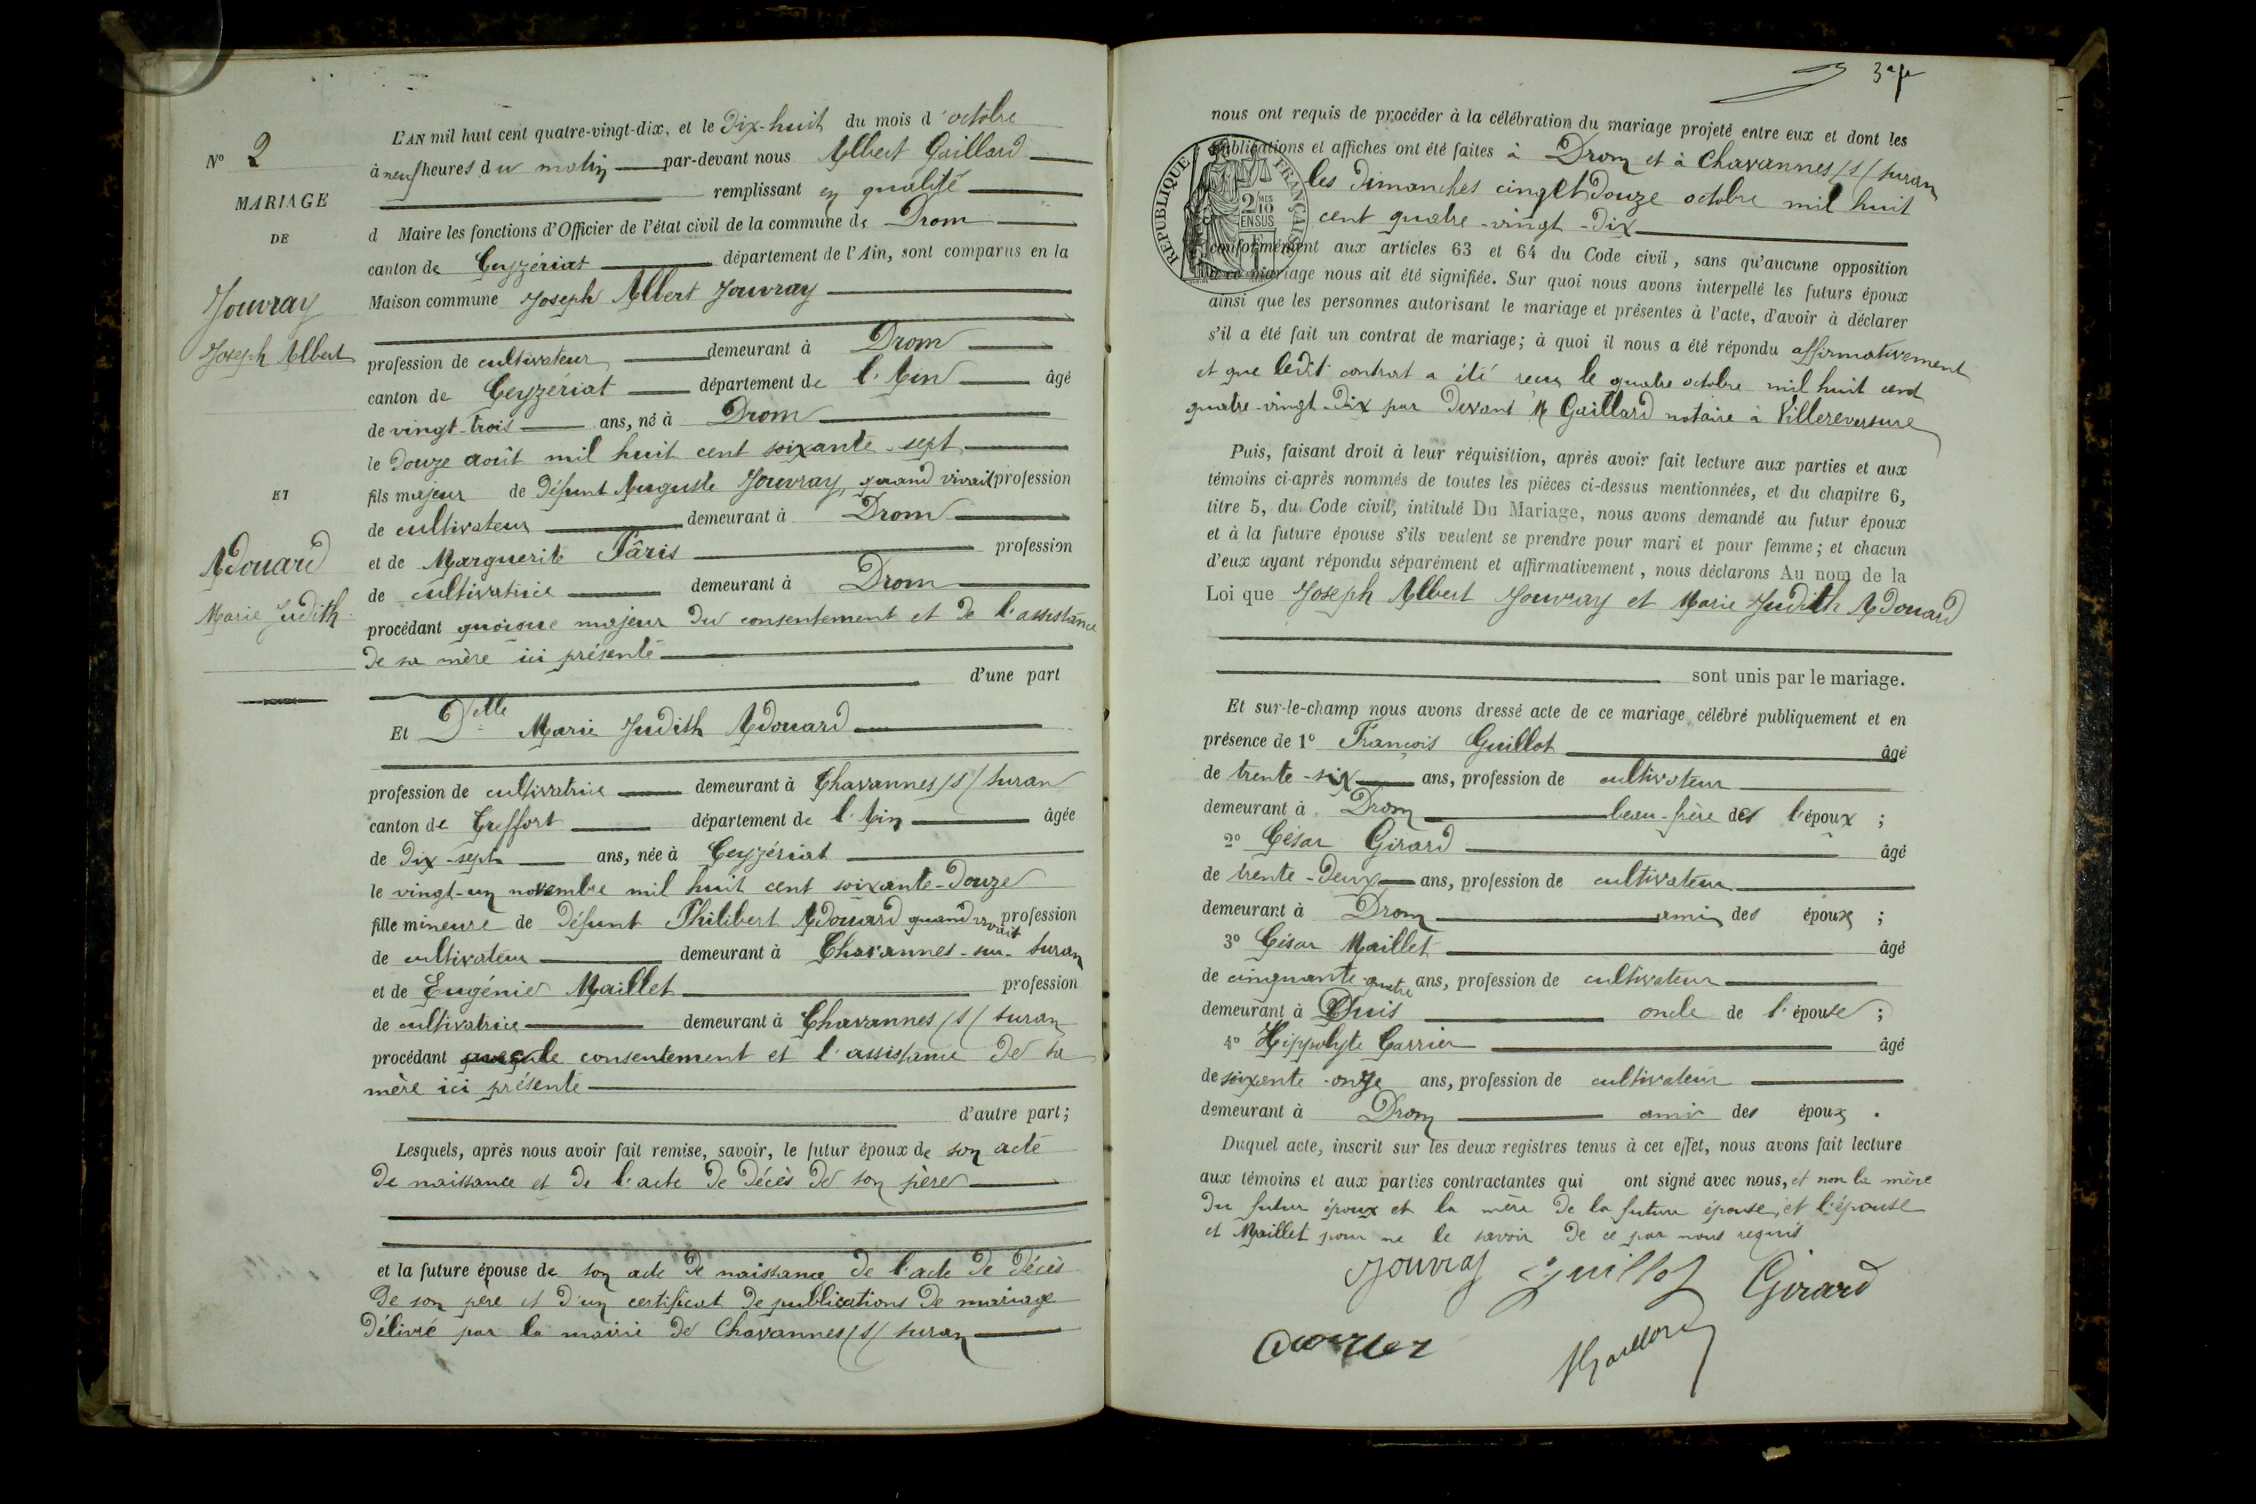 N° 2
MARIAGE
DE
Jouvray
Joseph Albert
ET
Adouard
Marie Judith
L'AN mil huit cent quatre-vingt-dix, et le Dix-huit du mois d'octobre
à neuf heures du matin par-devant nous Albert Gaillard
remplissant en qualité
d Maire les fonctions d'Officier de l'état civil de la commune de Drom
canton de Ceyzériat département de l'Ain, sont comparus en la
Maison commune Joseph Albert Jouvray
profession de cultivateur demeurant à Drom
canton de Ceyzériat département de l'Ain âgé
de vingt-trois ans, né à Drom
le douze août mil huit cent soixante-sept
fils majeur de Défunt Auguste Jouvray, quand vivait profession
de cultivateur demeurant à Drom
et de Marguerite Pâris profession
de cultivatrice demeurant à Drom
procédant quoique majeur du consentement et de l'assistance
de sa mère ici présente
d'une part
Et Delle Marie Judith Adouard
profession de cultivatrice demeurant à Chavannes/s/suran
canton de Treffort département de l'Ain âgée
de dix-sept ans, née à Ceyzériat
le vingt-un novembre mil huit cent soixante-douze
fille mineure de défunt Philibert Adouard quand vivait profession
de cultivateur demeurant à Chavannes-sur-suran
et de Eugénie Maillet profession
de cultivatrice demeurant à Chavannes/s/suran
procédant le consentement et l'assistance de sa
mère ici présente
d'autre part;
Lesquels, après nous avoir fait remise, savoir, le futur époux de son acte
de naissance et de l'acte de décès de son père
et la future épouse de son acte de naissance de l'acte de décès
de son père et d'un certificat de publications de mariage
délivré par la mairie de Chavannes/s/suran
nous ont requis de procéder à la célébration du mariage projeté entre eux et dont les
publications et affiches ont été faites à Drom et à Chavannes/s/suran
les dimanches cinq et douze octobre mil huit
cent quatre-vingt-dix
RÉPUBLIQUE FRANÇAISE
2 MES
10
EN SUS
conformément aux articles 63 et 64 du Code civil, sans qu'aucune opposition
à ce mariage nous ait été signifiée. Sur quoi nous avons interpellé les futurs époux
ainsi que les personnes autorisant le mariage et présentes à l'acte, d'avoir à déclarer
s'il a été fait un contrat de mariage; à quoi il nous a été répondu affirmativement
et que ledit contrat a été reçu le quatre octobre mil huit cent
quatre-vingt-dix par devant M Gaillard notaire à Villereversure
Puis, faisant droit à leur réquisition, après avoir fait lecture aux parties et aux
témoins ci-après nommés de toutes les pièces ci-dessus mentionnées, et du chapitre 6,
titre 5, du Code civil, intitulé Du Mariage, nous avons demandé au futur époux
et à la future épouse s'ils veulent se prendre pour mari et pour femme; et chacun
d'eux ayant répondu séparément et affirmativement, nous déclarons Au nom de la
Loi que Joseph Albert Jouvray et Marie Judith Adouard
sont unis par le mariage.
Et sur-le-champ nous avons dressé acte de ce mariage célébré publiquement et en
présence de 1° François Guillot âgé
de trente-six ans, profession de cultivateur
demeurant à Drom beau-frère de l'époux ;
2° César Girard âgé
de trente-deux ans, profession de cultivateur
demeurant à Drom ami des époux ;
3° César Maillet âgé
de cinquante-quatre ans, profession de cultivateur
demeurant à Dhuis oncle de l'épouse ;
4° Hippolyte Carrier âgé
de soixante-onze ans, profession de cultivateur
demeurant à Drom ami des époux .
Duquel acte, inscrit sur les deux registres tenus à cet effet, nous avons fait lecture
aux témoins et aux parties contractantes qui ont signé avec nous, et non la mère
du futur époux et la mère de la future épouse, et l'épouse
et Maillet pour ne le savoir de ce par nous requis
Jouvray Guillot Girard
Carrier AGaillard